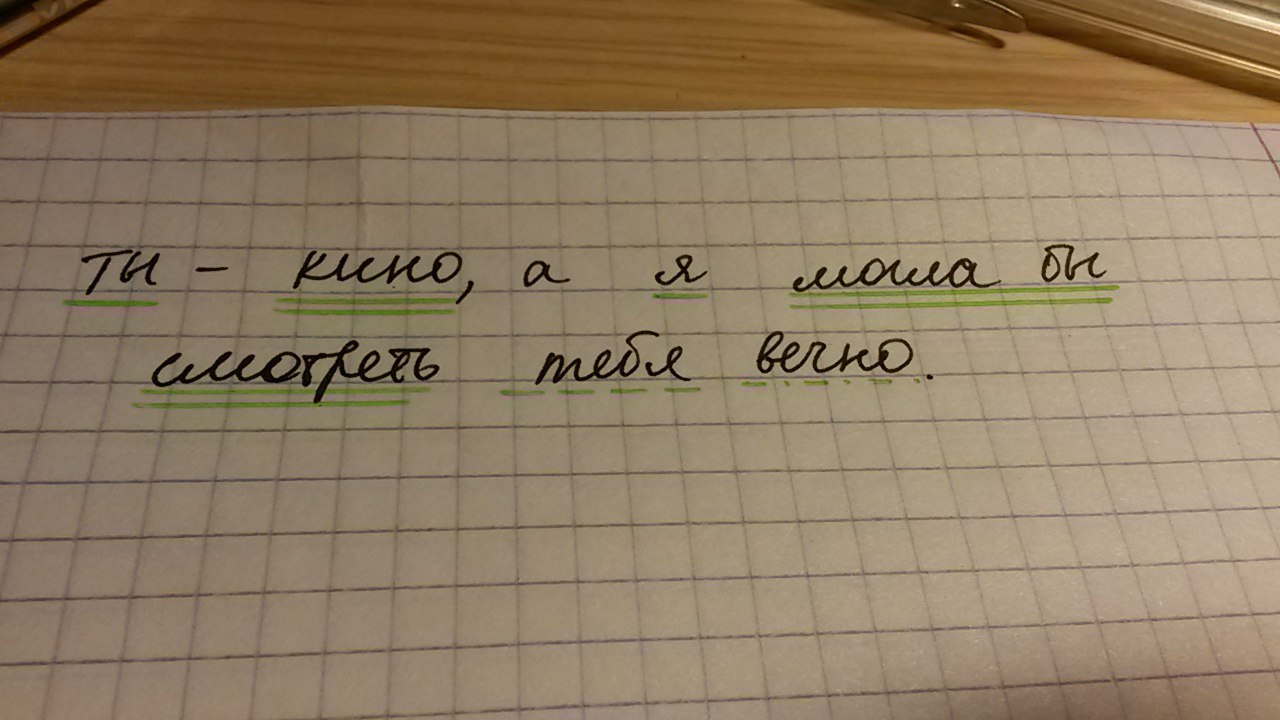 ты - кино, а я могла бы
смотреть тебя вечно.